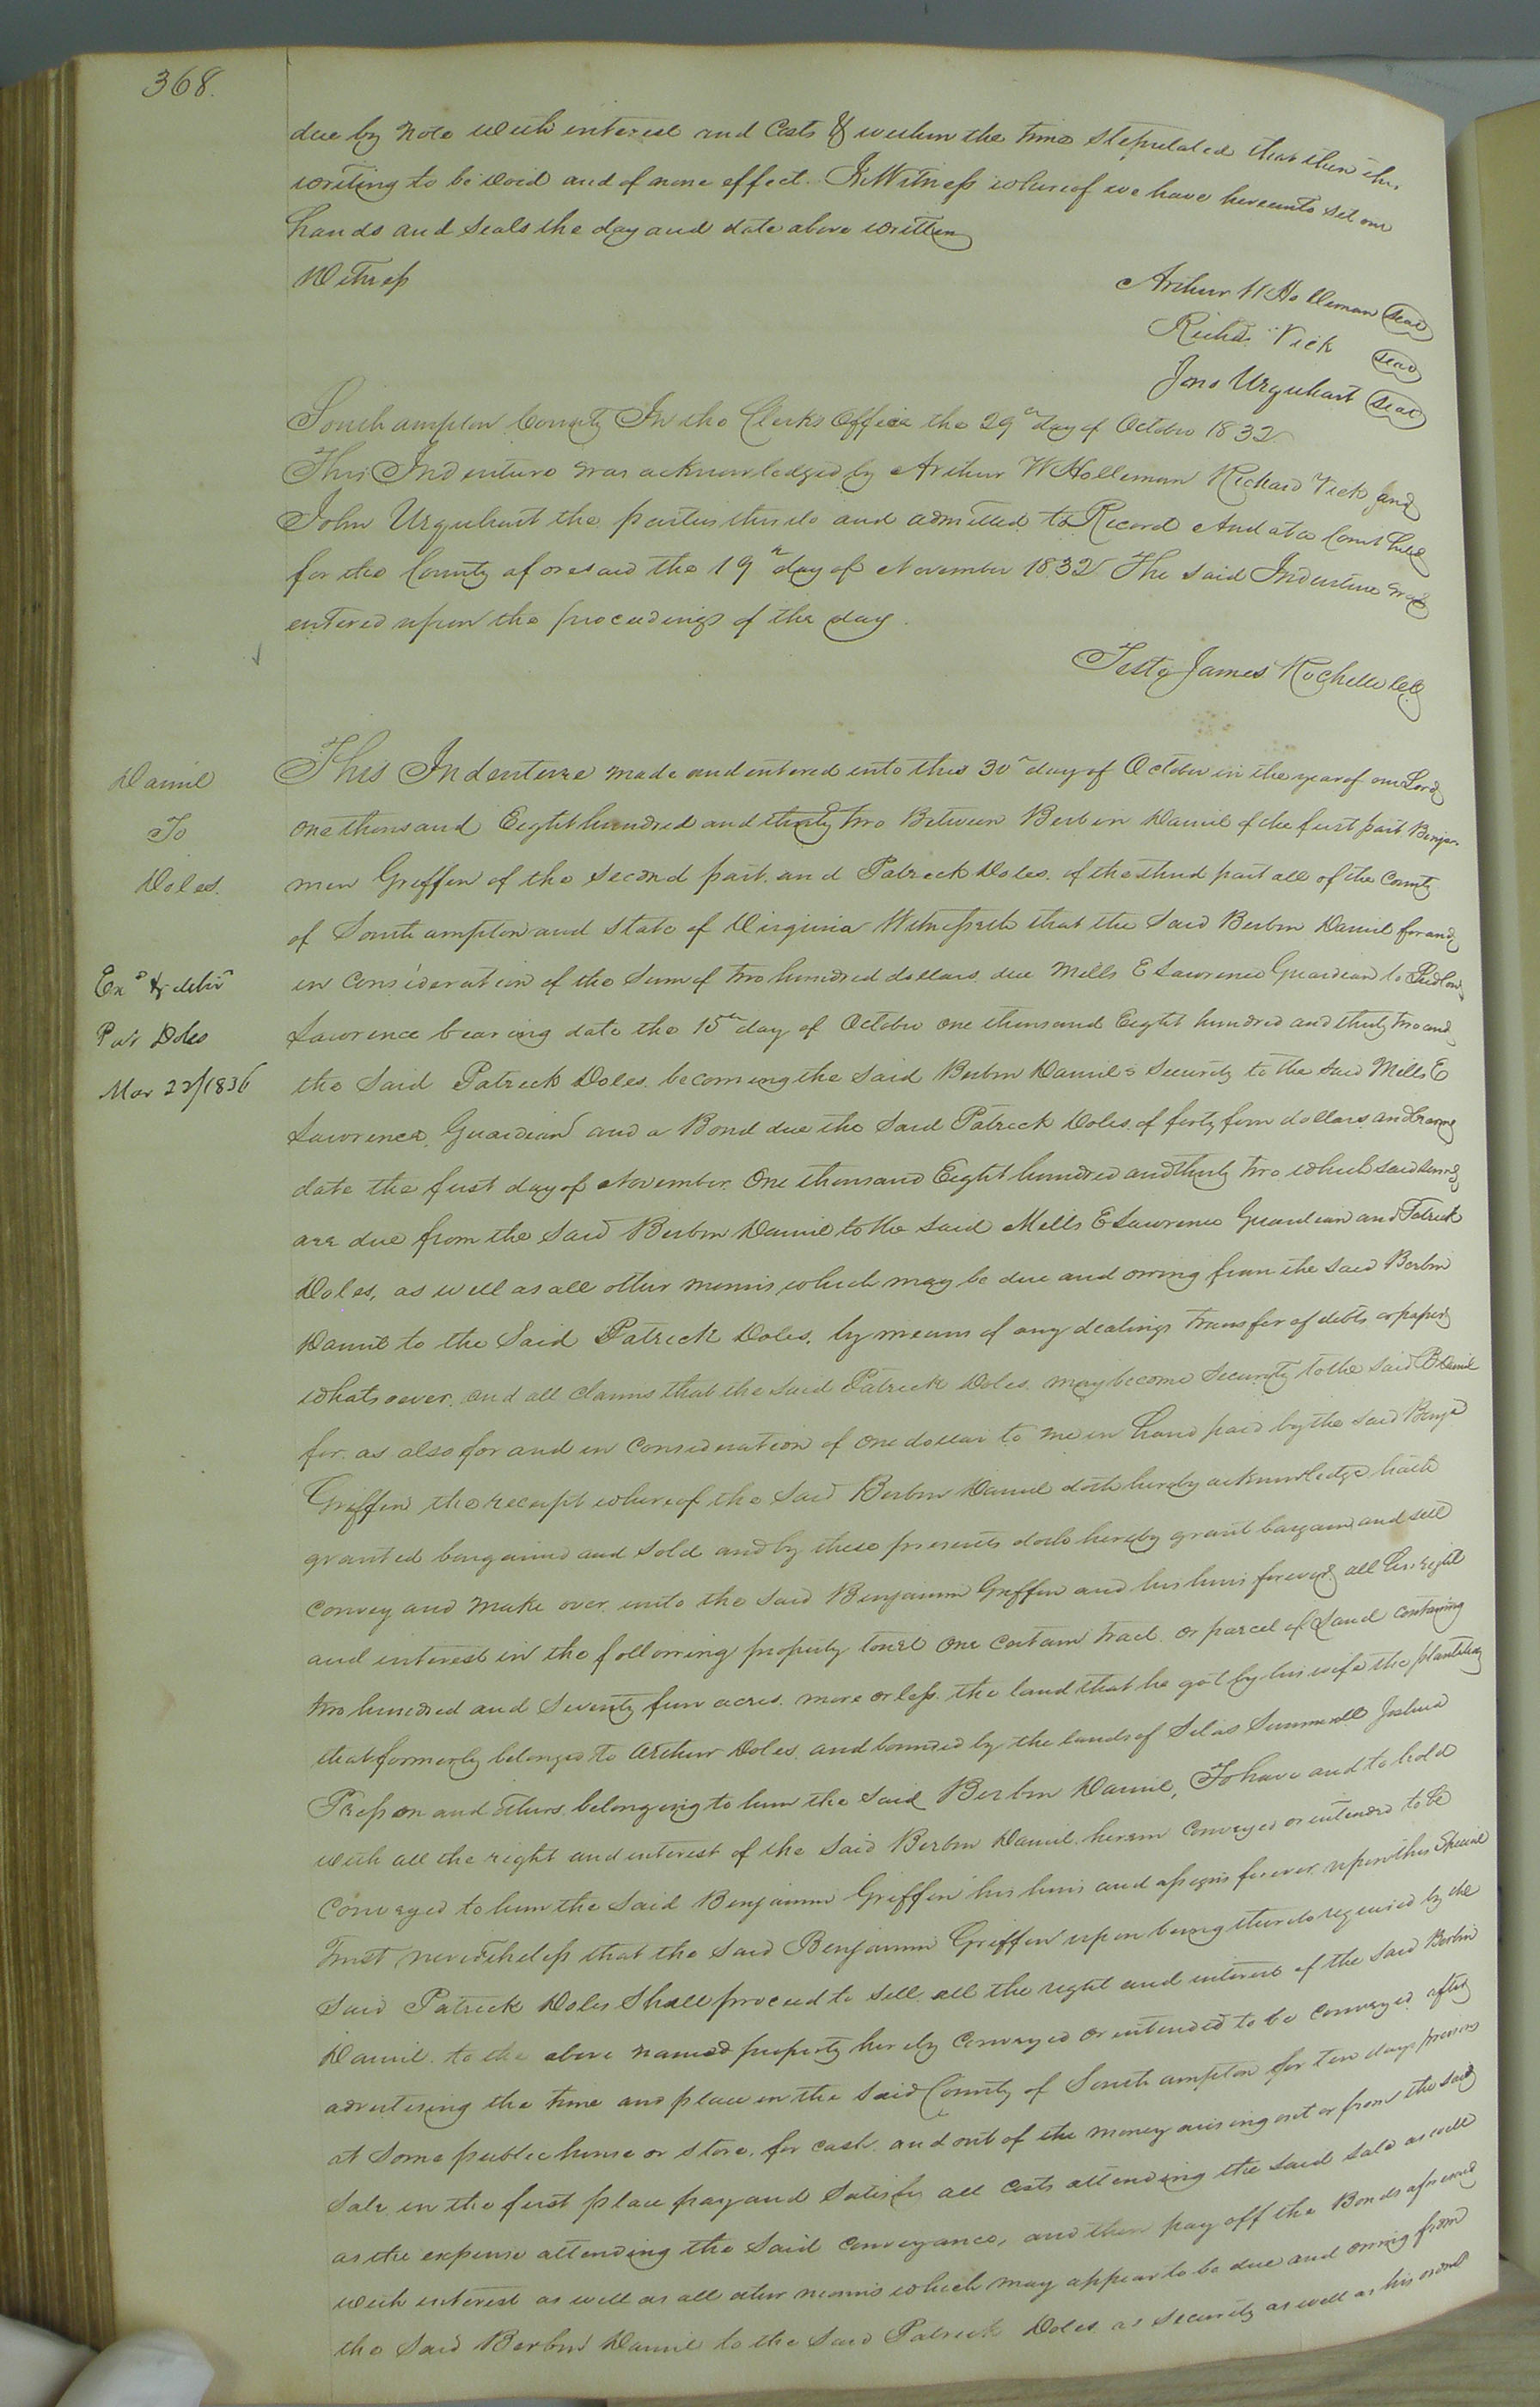 368.
due by note with interest and Costs & within the time stipulated that then this
writing to be void and of none effect. In Witness whereof we have hereunto set our
hands and Seals the day and date above written
Witness
Arthur W Holleman Seal
Richd. Vick Seal
Jno Urquhart Seal
Southampton County In the Clerks Office the 29th day of October 1832
This Indenture was acknowledged by Arthur W Holleman Richard Vick and
John Urquhart the parties thereto and admitted to Record And at a Court held
for the County aforesaid the 19th day of November 1832 The said Indenture was
entered upon the proceedings of the day.
Teste James Rochelle CC
Daniel
To
Doles.
Exd & delivd
Pat Doles
Mar 22/1836
This Indenture made and entered into this 30th day of October in the year of our Lord
one thousand Eight hundred and thirty two Between Berbin Daniel of the first part Benja-
min Griffin of the second part. and Patrick Doles. of the third part all of the County
of Southampton and State of Virginia Witnesseth that the Said Berbin Daniel for and
in Consideration of the Sum of two hundred dollars due Mills E Lawrence Guardian to
Lawrence bearing date the 15th day of October one thousand Eight hundred and thirty two and
the Said Patrick Doles. becoming the Said Berbin Daniels Security to the Said Mills E
Lawrence. Guardian and a Bond due the Said Patrick Doles. of forty four dollars and bearing
date the first day of November. One thousand Eight hundred and thirty two which said sums
are due from the Said Berbin Daniel to the Said Mills E Lawrence Guardian and Patrick
Doles, as well as all other monies which may be due and owing from the Said Berbin
Daniel to the Said Patrick Doles. by means of any dealings transfer of debts or papers
whatsoever. and all claims that the Said Patrick Doles. may become Security to the said B Daniel
for. as also for and in Consideration of one dollar to me in hand paid by the said Benja
Griffin the receipt whereof the Said Berbin Daniel doth hereby acknowledge hath
granted bargained and Sold and by these presents doth hereby grant bargain and sell
Convey and make over unto the Said Benjamin Griffin and his heirs forever all his right
and interest in the following property towit One Certain tract or parcel of Land containing
two hundred and Seventy four acres. more or less. the land that he got by his wife the plantation
that formerly belonged to Arthur Doles. and bounded by the lands of Silas Summerell Joshua
Presson and others. belonging to him the Said Berbin Daniel, To have and to hold
with all the right and interest of the Said Berbin Daniel. herein Conveyed or intended to be
Conveyed to him the Said Benjamin Griffin his heirs and assigns forever. upon this Special
Trust nevertheless that the Said Benjamin Griffin upon being thereto required by the
Said Patrick Doles Shall proceed to Sell. all the right and interest of the Said Berbin
Daniel. to the above named property hereby Conveyed or intended to be Conveyed after
advertising the time and place in the Said County of Southampton for ten days previous
at Some public house or store. for cash. and out of the money arising out or from the said
Sale in the first place pay and Satisfy all Costs attending the Said Sale as well
as the expense attending the Said Conveyance, and then pay off the Bonds aforesaid
with interest as well as all other monies which may appear to be due and owing from
the Said Berbin Daniel to the Said Patrick Doles. as Security as well as his